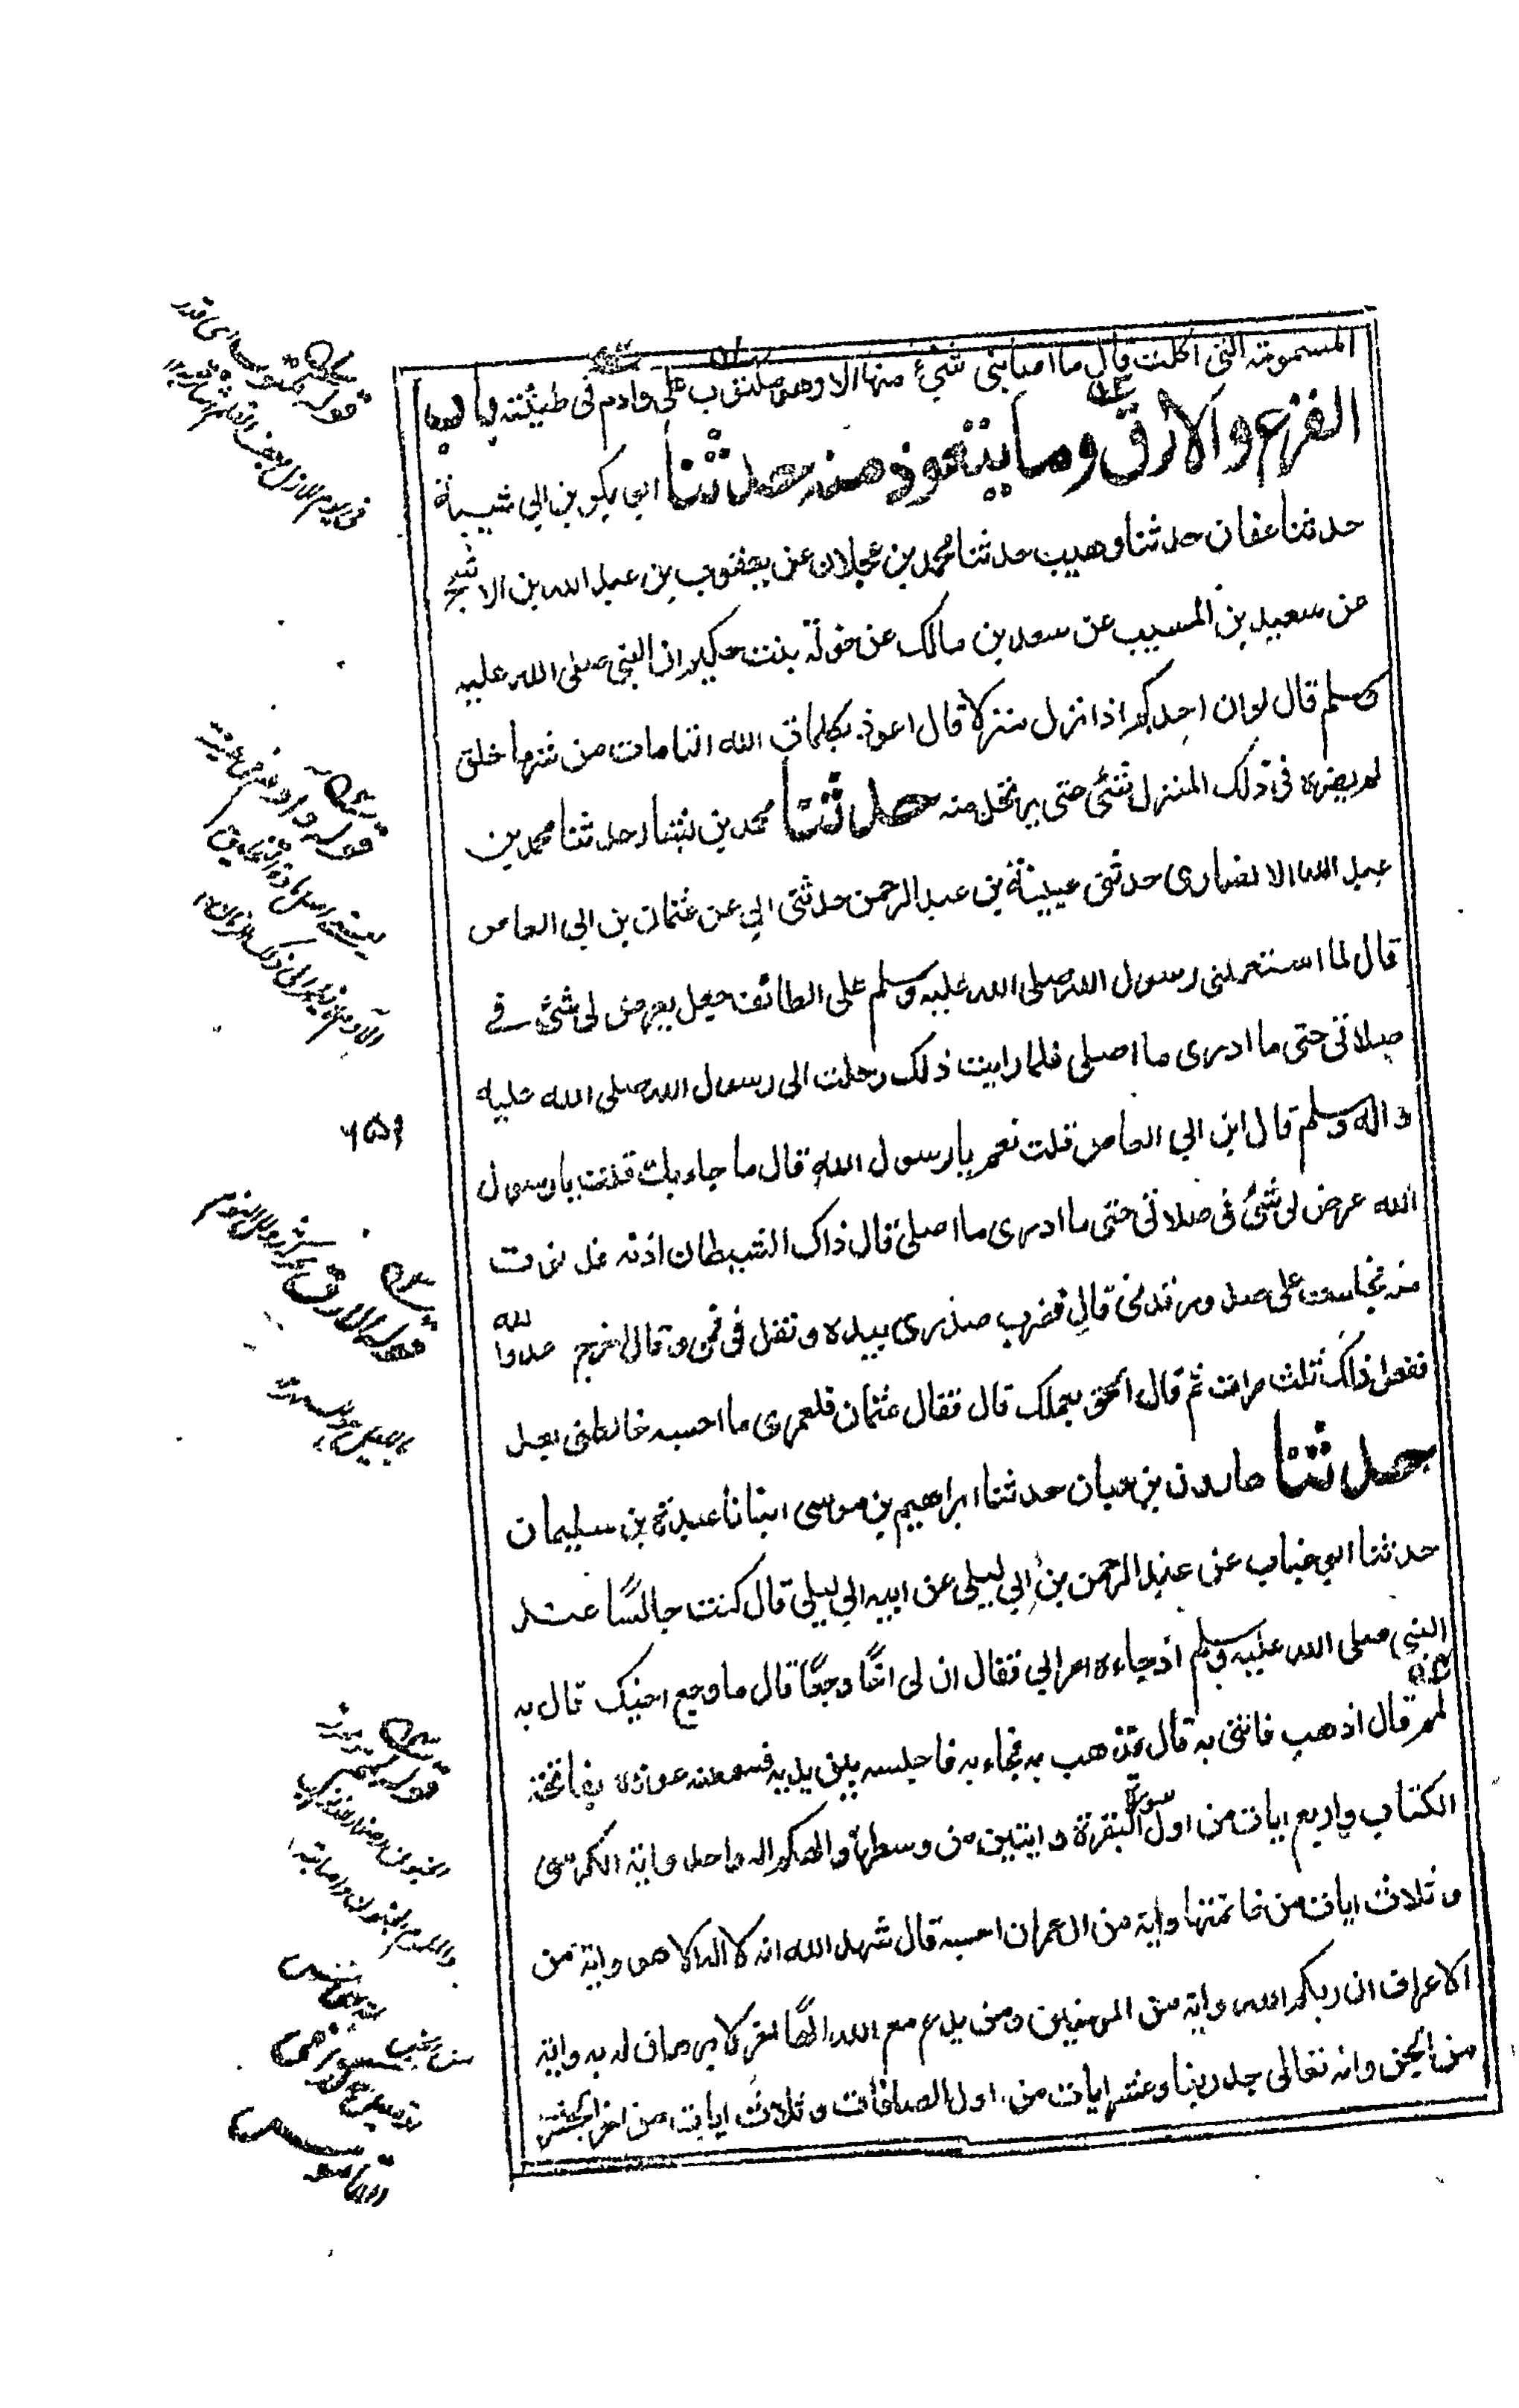 المسمومة التى اكلت قال ما اصابنى شىء منها الا وهو مكتوب على وادم فى طينته باب
الفزع والارق وما يتعوذ منه حدثنا ابو بكر بن ابي شيبة
حدثنا عفان حدثنا وهيب حدثنا محمد بن عجلان عن يعقوب بن عبد الله بن الاشج
عن سعيد بن المسيب عن سعد بن مالك عن خولة بنت حكيم ان النبى صلى الله عليه
وسلم قال لو ان احدكم اذا نزل منزلا قال اعوذ بكلمات الله التامات من شر ما خلق
لم يضره فى ذلك المنزل شئ حتى يرتحل منه حدثنا محمد بن بشار حدثنا محمد بن
عبد الله الانصارى حدثنى عيينة بن عبد الرحمن حدثنى ابي عن عثمان بن ابي العاص
قال لما استعملنى رسول الله صلى الله عليه وسلم على الطائف جعل يعرض لى شئ فى
صلاتى حتى ما ادرى ما اصلى فلما رايت ذلك رحلت الى رسول الله صلى الله عليه
واله وسلم قال ابن ابي العاص قلت نعم يا رسول الله قال ما جاء بك قلت يا رسول
الله عرض لى شئ فى صلاتى حتى ما ادرى ما اصلى قال ذاك الشيطان ادنه فدنوت
منه فجلست على صدور قدمى قال فضرب صدرى بيده وتفل فى فمى وقال اخرج عدو الله
ففعل ذلك ثلث مرات ثم قال الحق بعملك قال فقال عثمان فلعمرى ما احسبه خالطنى بعد
حدثنا هارون بن حيان حدثنا ابراهيم بن موسى انبانا عبدة بن سليمان
حدثنا ابو جناب عن عبد الرحمن بن ابي ليلى عن ابيه ابي ليلى قال كنت جالسًا عند
النبى صلى الله عليه وسلم اذ جاءه اعرابي فقال ان لى اخًا وجعًا قال ما وجع اخيك قال به
لمم قال اذهب فاتنى به قال فذهب به فجاء به فاجلسه بين يديه فسمعته عوذه بفاتحة
الكتاب واربع ايات من اول سورة البقرة وايتين من وسطها والهكم اله واحد واية الكرسى
وثلاث ايات من خاتمتها واية من ال عمران احسبه قال شهد الله انه لا اله الا هو واية من
الاعراف ان ربكم الله واية من المومنين ومن يدع مع الله الهًا اخر لا برهان له به واية
من الجن وانه تعالى جد ربنا وعشر ايات من اول الصافات وثلاث ايات من اخر الحشر
قوله مكتوب اى قدر
قوله وادم فى طينته
۶۵۹
قوله الارق
بالليل
قوله لمم
القاموس